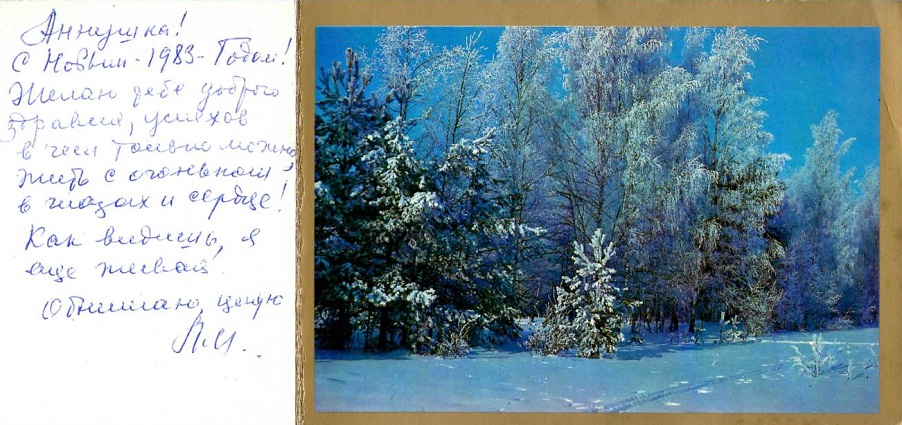 Аннушка!
С Новым-1983-Годом!
Желаю тебе доброго
здравия, успехов
в чем только можно,
жить с огоньком
в глазах и сердце!
Как видишь, я
еще живая!
Обнимаю, целую